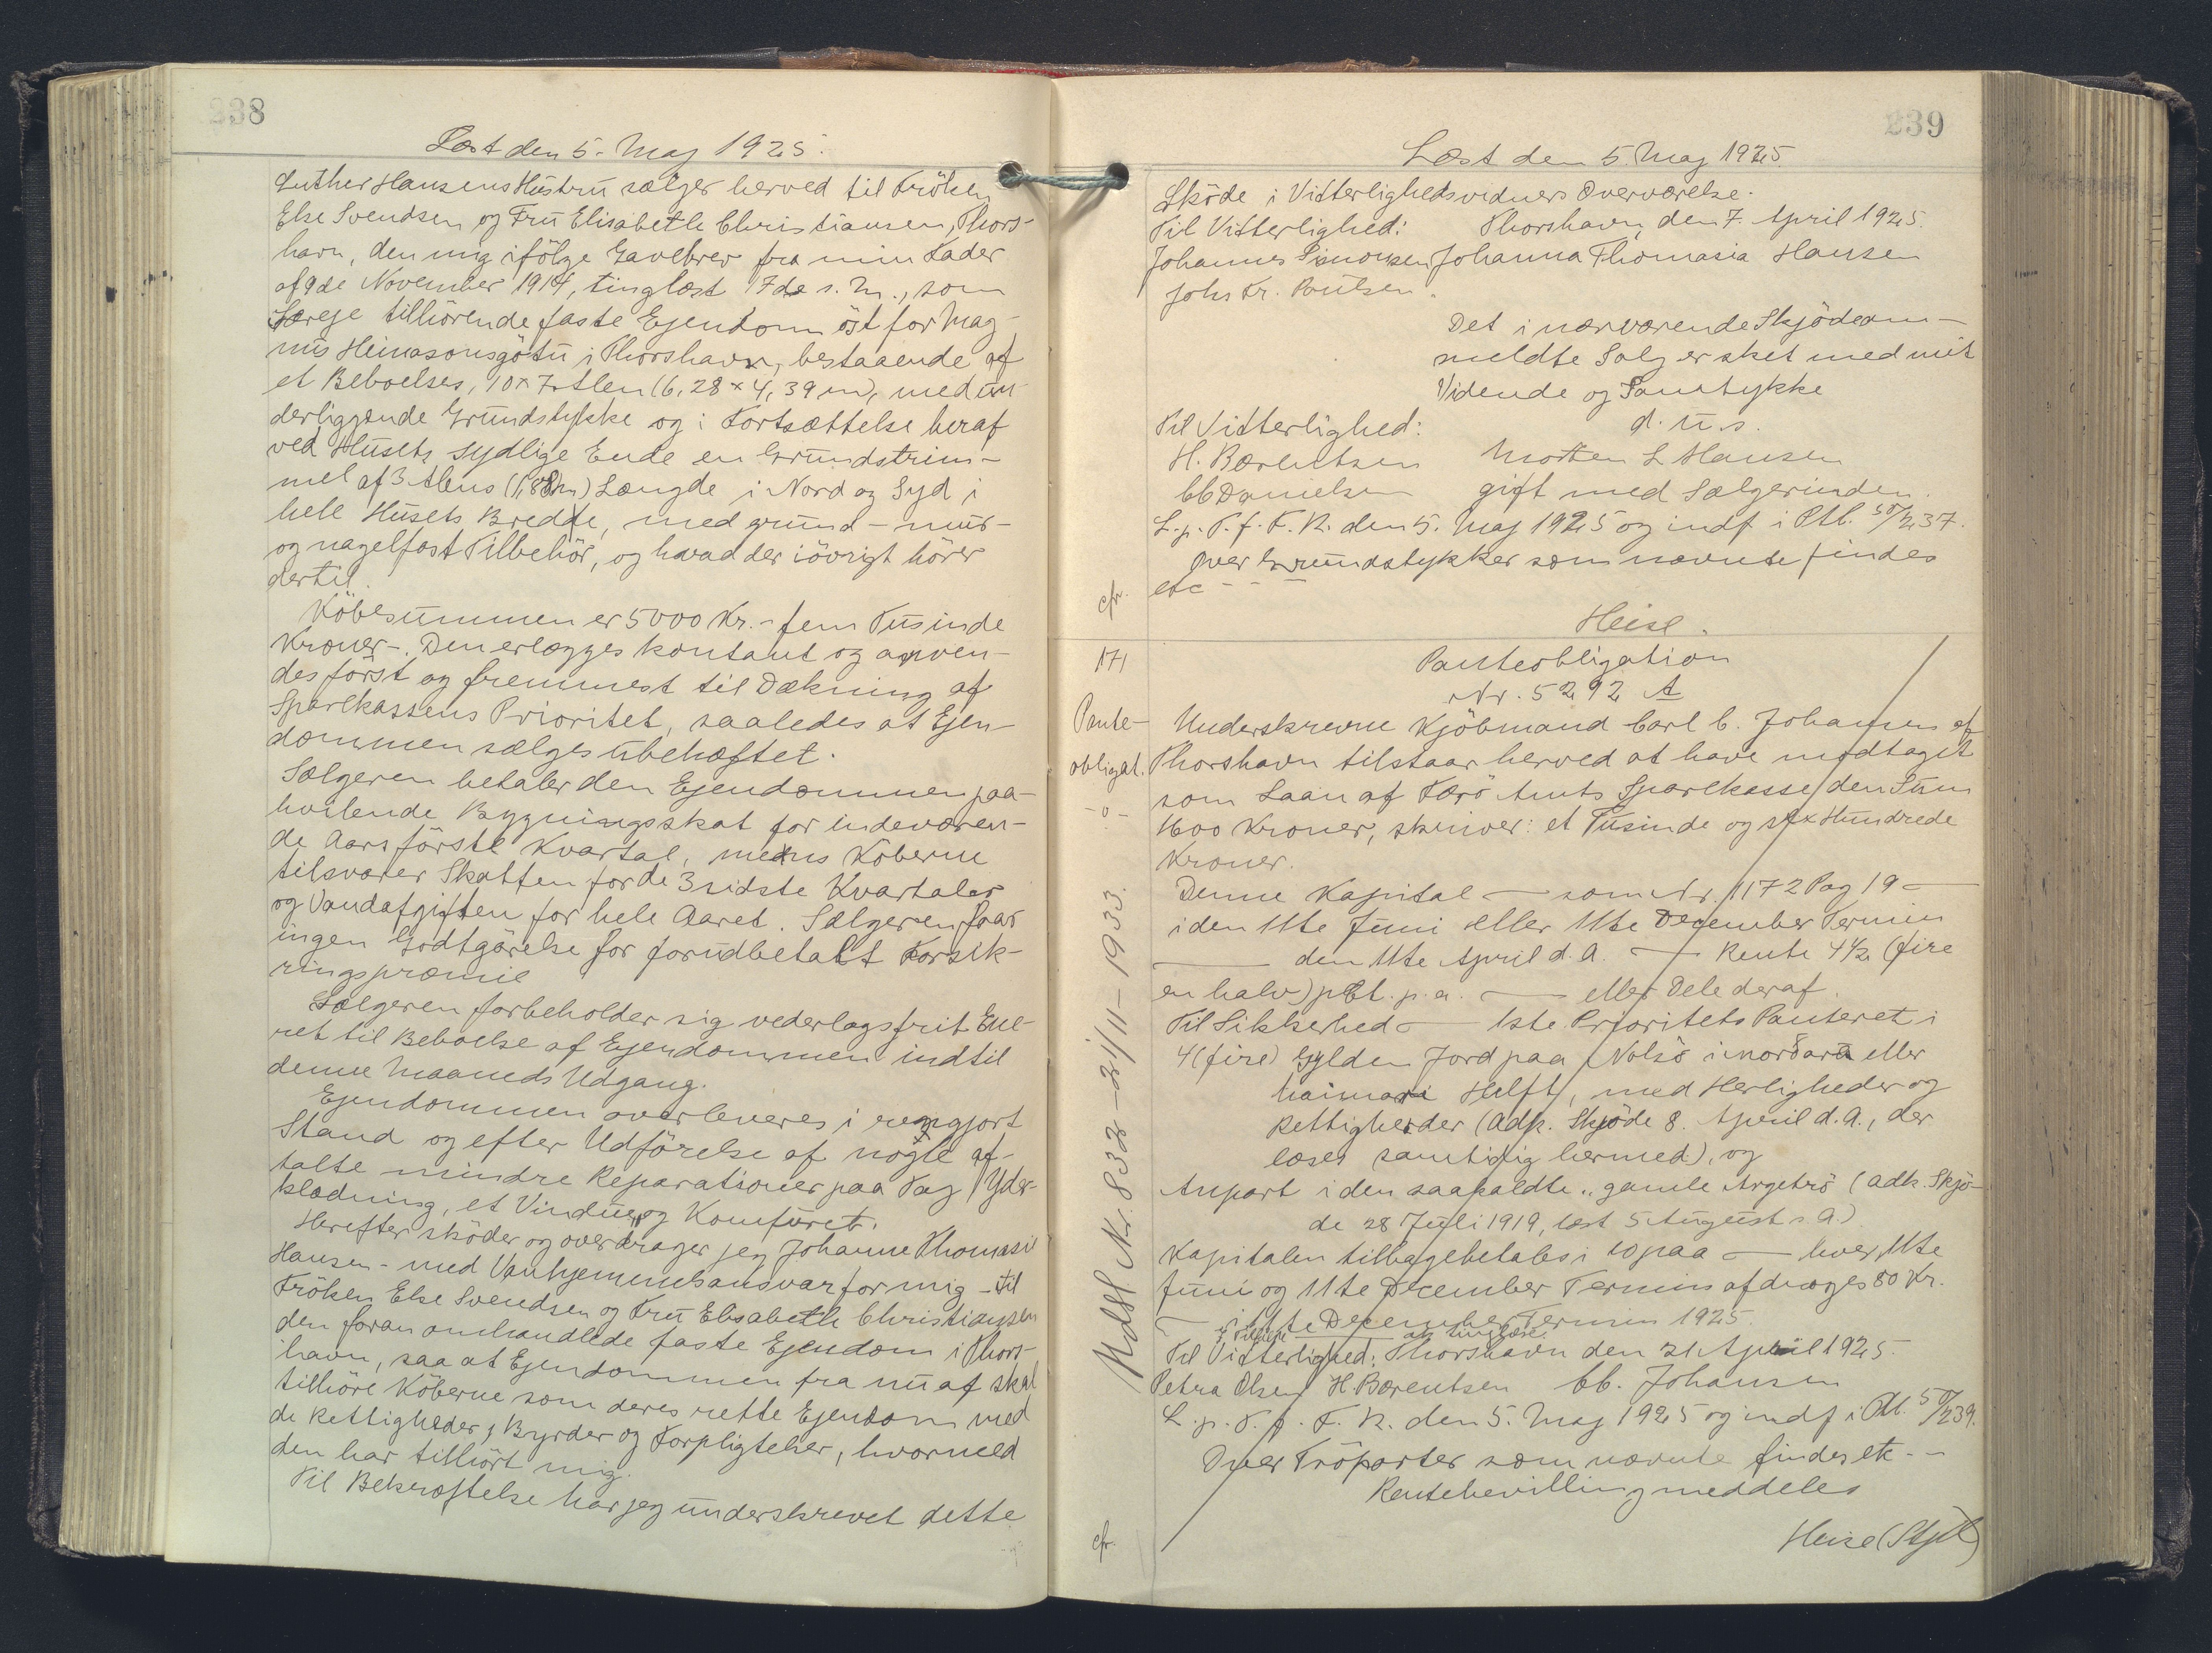 238
Læst den 5. Maj 1925.
Luther Hansens Hustru sælger herved til Fröken
Else Svendsen og Frú Elisabeth Christiansen, Thors-
havn, den mig ifölge Gavebrev fra min Fader
af 9de November 1914, tinglæst 17de s. M., som
Særeje tilhörende faste Ejendom öst for Mag-
nus Heinasonsgötú i Thorshavn, bestaaende af
et Beboelses, 10 x 7 Alen (6,28 x 4,39 m), med ún-
derliggende Grúndstykke og i Fortsættelse heraf
ved Húsets sydlige Ende en Grúndstrim-
mel af 3 Alens (1,88m) Længde i Nord og Syd i
hele Húsets Bredde, med grund- múr-
og nagelfast Tilbehör, og hvad der iövrigt hörer
dertil.
Köbesúmmen er 5000 Kr. - fem Túsinde
Kroner -. Den erlægges kontant og anven-
des först og fremmest til Dækning af
Sparekassens Prioritet, saaledes at Ejen-
dommen sælges úbehæftet.
Sælgeren betaler den Ejendommen paa-
hvilende Bygningsskat for indeværen-
de Aars förste Kvartal, mens Köberne
tilsvarer Skatten for de 3 sidste Kvartaler
og Vandafgiften for hele Aaret. Sælgeren faar
ingen Godtgörelse for forúdbetalt Forsik-
ringspræmie
Sælgeren forbeholder sig vederlagsfrit Ene-
ret til Beboelse af Ejendommen indtil
denne Maaneds Udgang.
Ejendommen overleveres i rengjort
Stand og efter Udförelse af nogle af-
talte mindre Reparationer paa Tag, Yder-
klædning, et Vindúe og Komfúret.
Herefter sköder og overdrager jeg Johanne Thomasie
Hansen - med Vanhjemmelsansvar for mig - til
Fröken Else Svendsen og Frú Elisabeth Christiansen
den foran omhandlede faste Ejendom i Thors-
havn, saa at Ejendommen fra nú af skal
tilhöre Köberne som deres rette Ejendom med
de Rettigheder, Byrder og Forpligtelser, hvormed
den har tilhört mig.
Til Bekræftelse har jeg únderskrevet dette
239
Læst den 5. Maj 1925.
Sköde i Vitterlighedsvidners Overværelse.
Til Vitterlighed: Thorshavn, den 7. April 1925.
Johannes Simonsen Johanna Thomasia Hansen
Johs Kr. Poúlsen.
Det i nærværende Skjöde om-
meldte Salg er sket med mit
Vidende og Samtykke
Til Vitterlighed: d. ú. s.
H. Bærentsen Morten L Hansen
CC Danielsen gift med Sælgerinden.
L. p. T. f. F. R. den 5. Maj 1925 og indf i Ptb. 50/237.
Over Grúndstykker som nævnte findes
cfr. etc - - -
Heise.
171 Panteobligation
Nr. 5292 A
Pante- Underskrevne Kjöbmand Carl C. Johansen af
obligat. Thorshavn tilstaar herved at have modtaget
-o- som Laan af Færö Amts Sparekasse den Súm
1600 Kroner, skriver: et Túsinde og sex Húndrede
Kroner.
Denne Kapital — som Nr. 1172 Pag 19 —
i den 11te Júni eller 11te December Termin
— den 11te April d. A. — Rente 4½ (fire
en halv) pCt. p. a. — eller Dele deraf.
Til Sikkerhed — 1ste Prioritets Panteret i
4 (fire) Gylden Jord paa Nolsö i norðara eller
haimara Helft, med Herligheder og
Rettigheder (Adk. Skjöde 8. April d. A., der
læses samtidig hermed), og
Anpart i den saakaldte "gamle Argetrö (Adk. Skjö-
de 28 Júli 1919, læst 5 Aúgúst s. A.)
Kapitalen tilbagebetales i 10 paa — hver 11te
Júni og 11te December Termin afdrages 80 Kr.
— i 11te December Termin 1925.
Til Vitterlighed: Thorshavn den 21 April 1925.
Petra Olsen H. Bærentsen CC. Johansen
L. p. T. f. F. R. den 5. Maj 1925 og indf i Ptb. 50/239.
Over Tröparter som nævnte findes etc - -
Rentebevilling meddeles
cfr. Heise (Stpl)
Udsl. Nr. 832 - 21/11 - 1933.